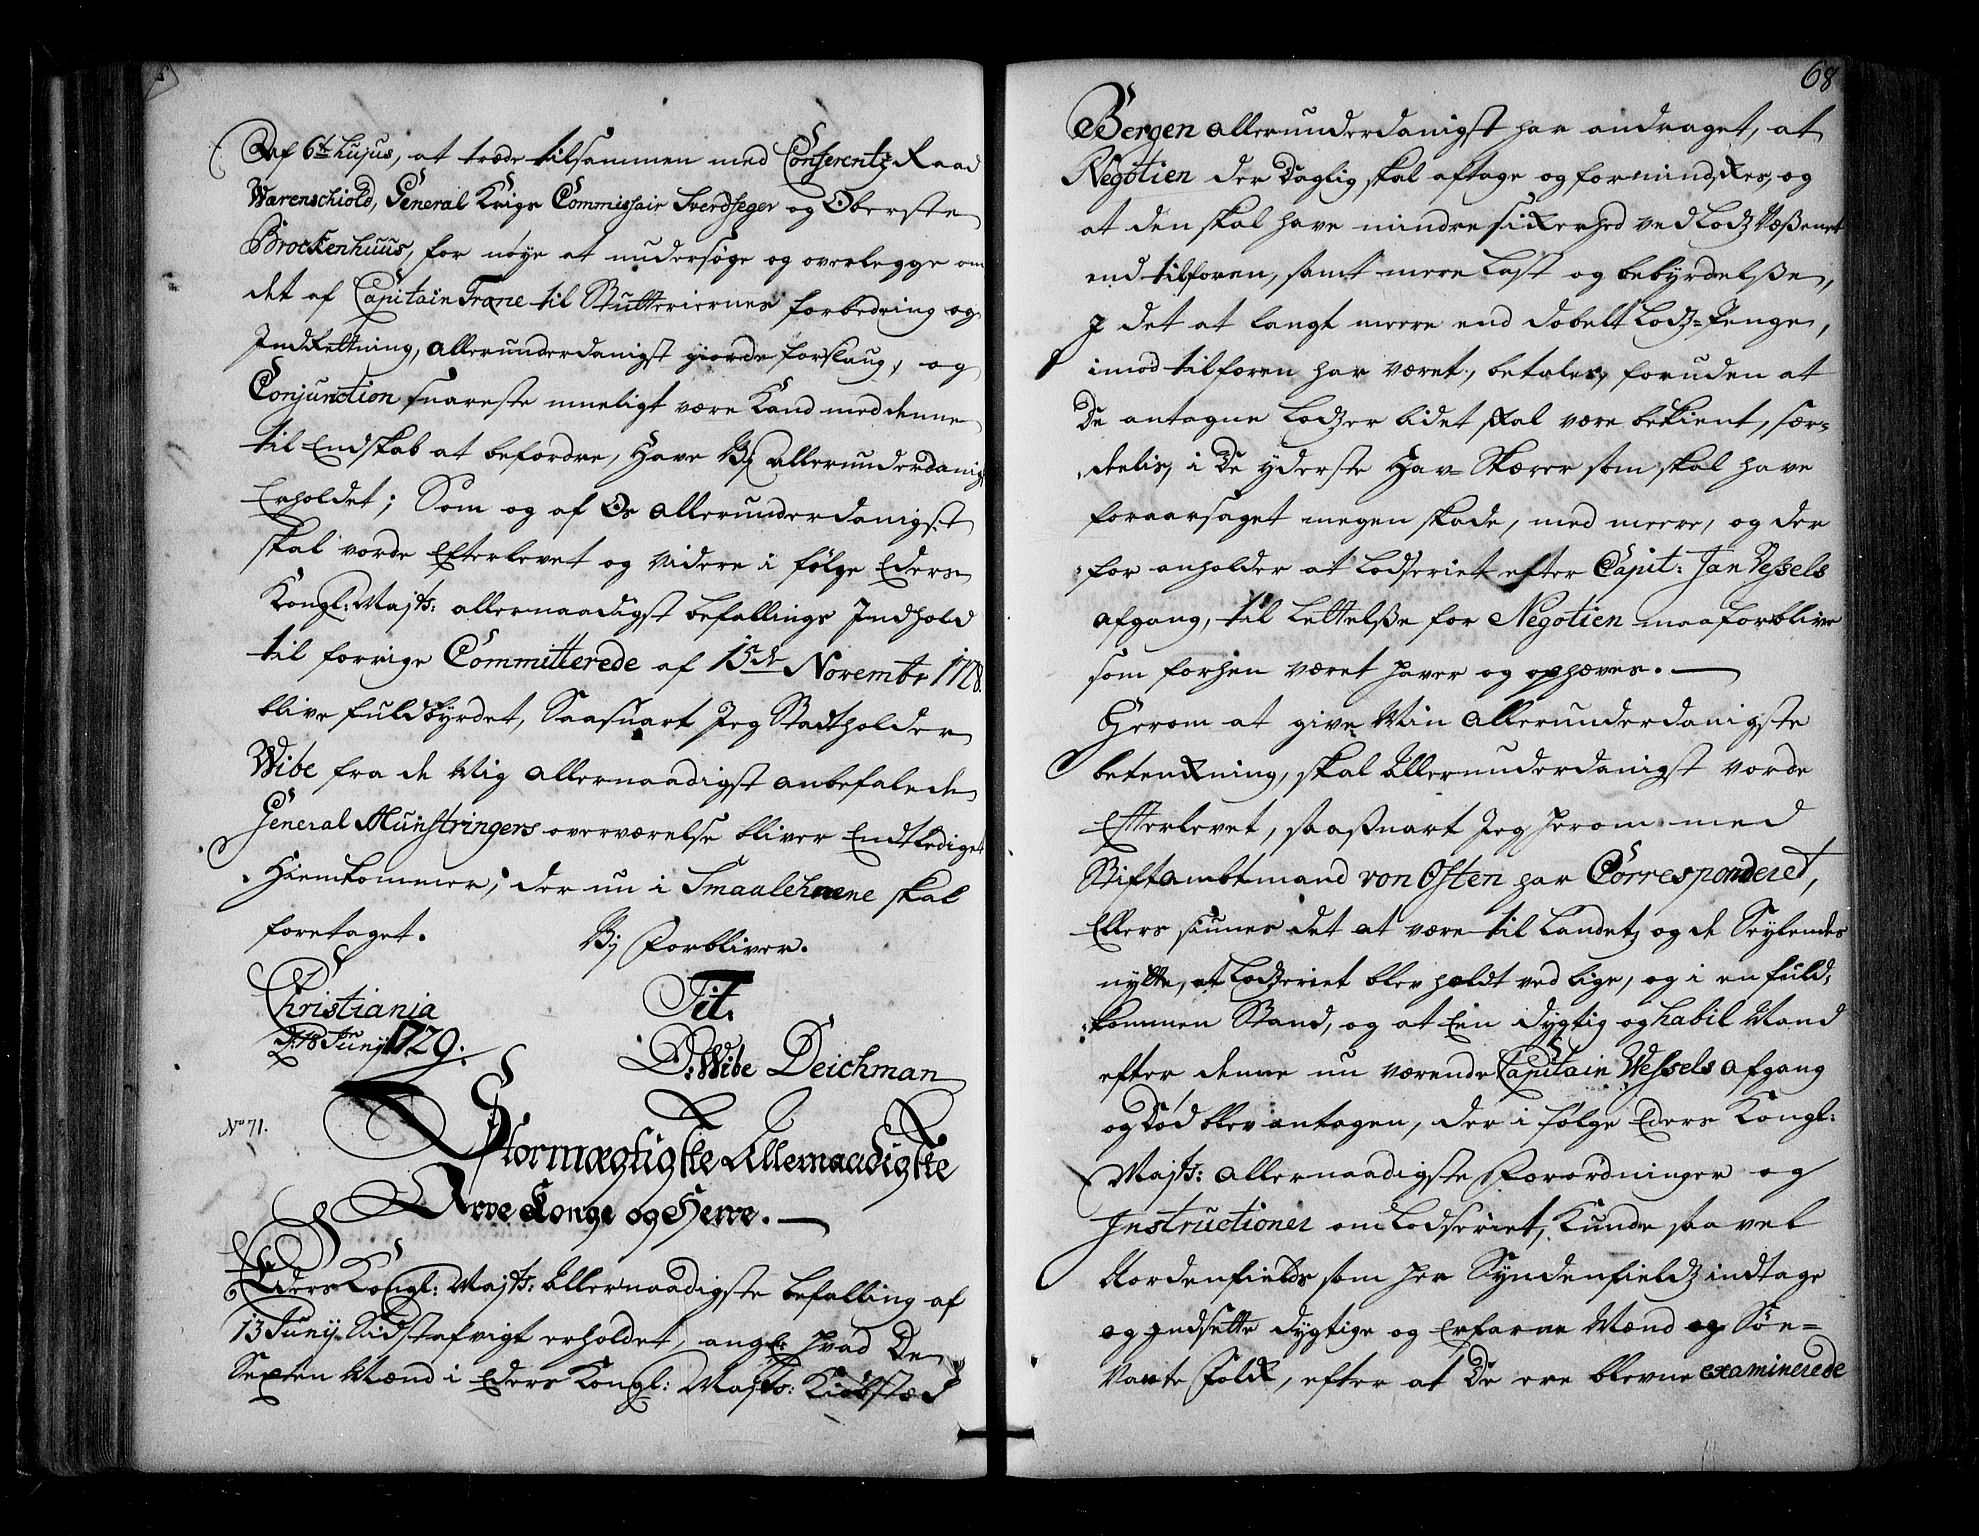 Af 6te hujus, at træde tilsammen med Conferentz Raad
Warenschiold, General Krigs Commissair Sverdfeger og Oberste
Brockenhuus, for nøye at undersøge og overlegge om
det af Capitain Trane til Stutteriernes forbedring og
Indrettning, allerunderdanigst giorde forslaug, og
Conjunction snareste mueligt være kand med denne
til Endskab at befordre, Have Vj allerunderdanigst
Erholdet; Som og af Os allerunderdanigst
skal vorde Efterlevet og videre i følge Eders
Kongl: Majts: allernaadigst befallings Indhold
til forrige Committerede af 15de Novembr 1728.
blive fuldbyrdet, Saasnart Jeg Stadtholder
Wibe fra de Mig allernaadigst anbefalede
General Munstringers overværelse bliver Endtlediget
Hiemkommer, der nu i Smaalehnene skal
foretaget. Vj Forbliver.
Christiania Tit.
d: 18 Junij 1729. D: Wibe Deichman
No 71.
Stormægtigste Allernaadigste
Arve Konge og Herre.
Eders Kongl: Majts: Allernaadigste befalling af
13 Junij Sidstafvigt erholdet, angl: hvad De
Sexten Mænd i Eders Kongl: Majts: Kiøbstæd
68
Bergen allerunderdanigst har andraget, at
Negotien der Daglig skal aftage og formindskes, og
at den skal have mindre sikerhed ved Lodz Væßenet
end tilforen, samt mere Last og bebyrdelße,
I det at langt meere end dobelt Lodz=Penge,
imod tilforen har været, betales, foruden at
De antagne Lodzer lidet skal være bekient, sær=
deelis, i De yderste Hav=Skærer som skal have
foraarsaget megen skade, med meere, og der
for anholder at Lodseriet efter Capit: Jan Vessels
afgang, til Lettelße for Negotien maa forblive
som forhen været haver og ophæves.
Herom at give Min allerunderdanigste
betenkning, skal Allerunderdanigst vorde
Efterlevet, saaßnart Jeg herom med
Stiftambtmand von Osten har Corresponderet,
Ellers siunes det at være til Landetz og de Seylendes
nytte, at Lodzeriet blev holdt ved lige, og i en fuld,
kommen Stand, og at Een dygtig og habil Mand
efter denne nu værende Capitain Wessels afgang
og Død blev antagen, der i følge Eders Kongl:
Majts: allernaadigste Forordninger og
Instructioner om Lodseriet, Kunde saa vel
Nordenfields som her Syndenfieldz indtage
og indsette dygtige og Erfarne Mænd og Søe=
Vante Folk, efter at De ere blevne examinerede